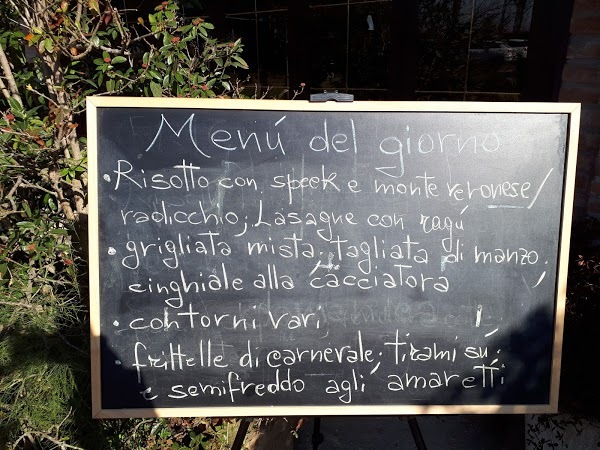 Menú del giorno
• Risotto con speck e monte veronese/
radicchio; Lasagne con ragú
• grigliata mista; tagliata di manzo;
cinghiale alla cacciatora
• contorni vari
• frittelle di carnevale; tirami sú,
e semifreddo agli amaretti